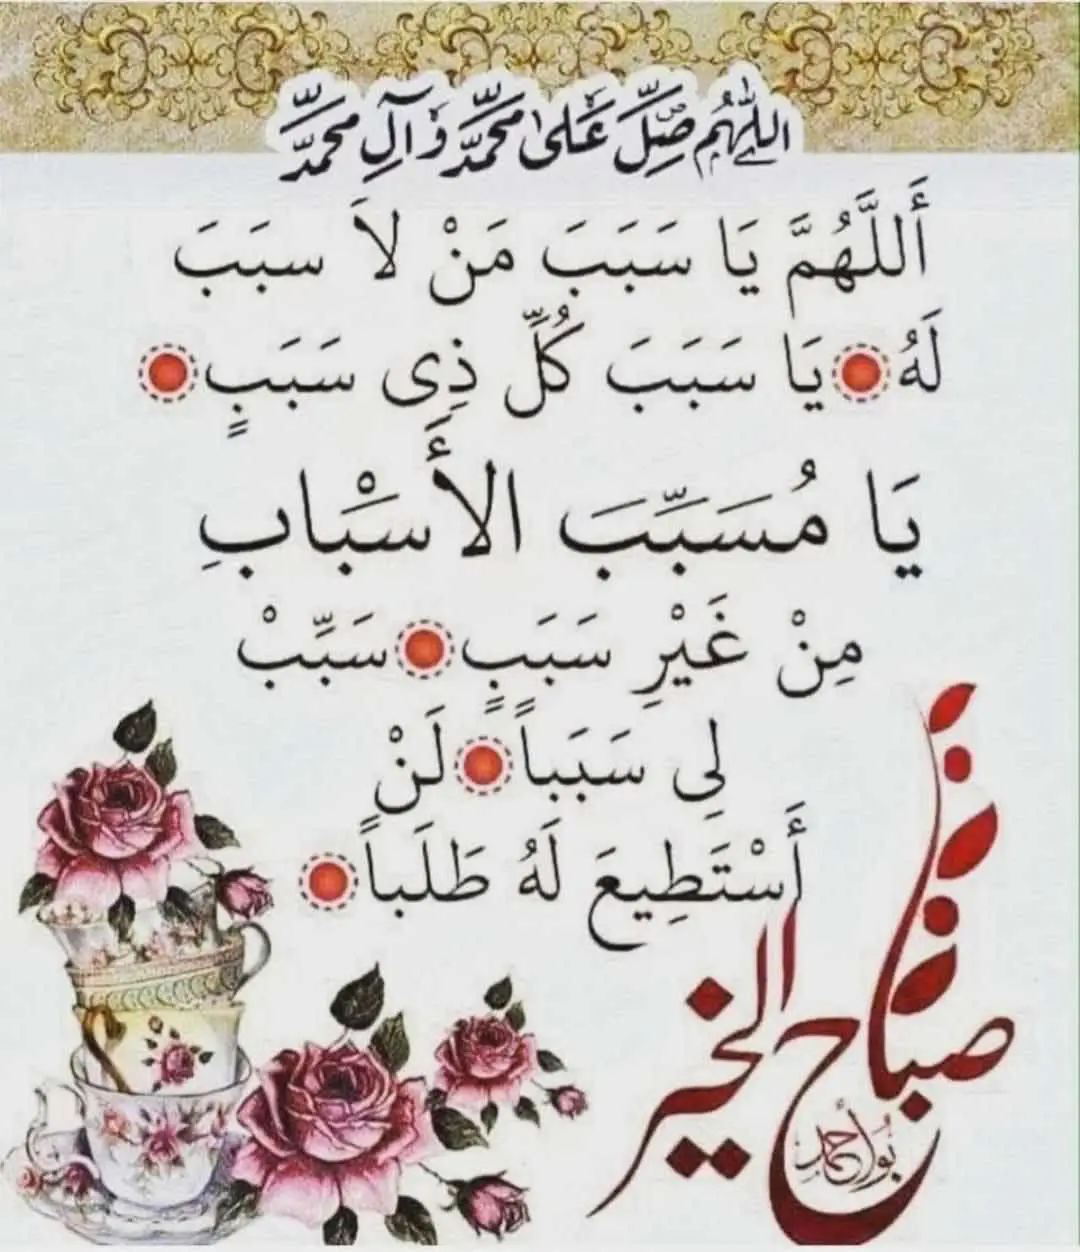 اللهم صل على محمد وآل محمد
أَللَّهُمَّ يَا سَبَبَ مَنْ لاَ سبَبَ
لَهُ يَا سَبَبَ كُلِّ ذِى سَبَبٍ
يَا مُسَبِّبَ الأَسْبابِ
مِنْ غَيْرِ سَبَبٍ سَبِّبْ
لِى سَبَباً لَنْ
أَسْتَطِيعَ لَهُ طَلَباً
صباح الخير
بو أحمد